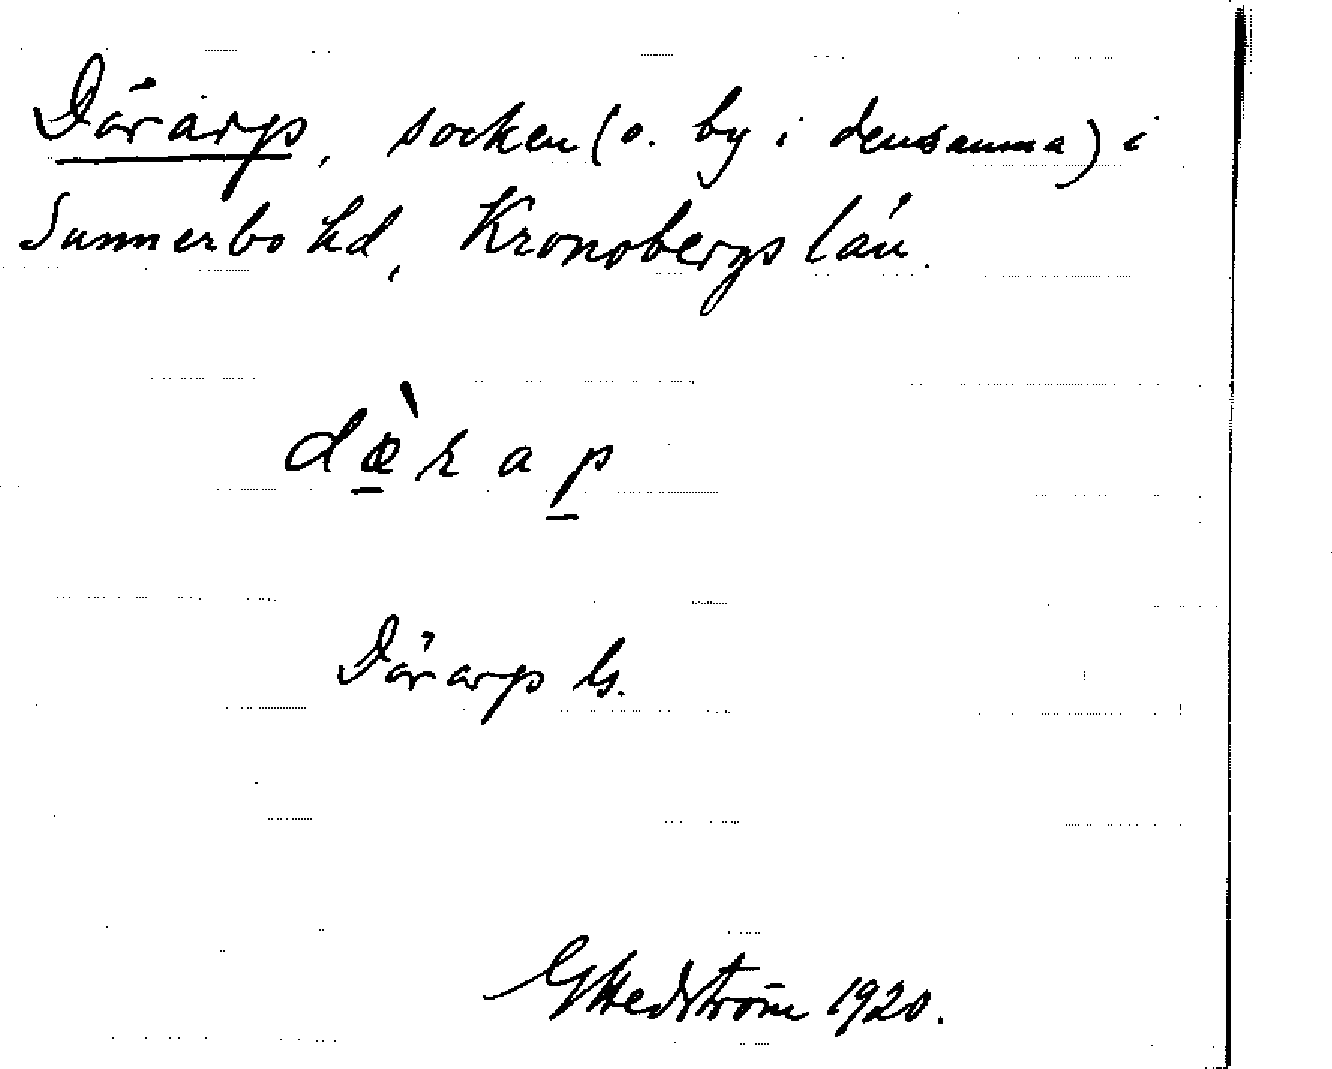 Dörarp, socken (o. by i densamma) i
Sunnerbo hd, Kronobergs län.
dœ̀rap
Dörarp ls.
G Hedström 1920.